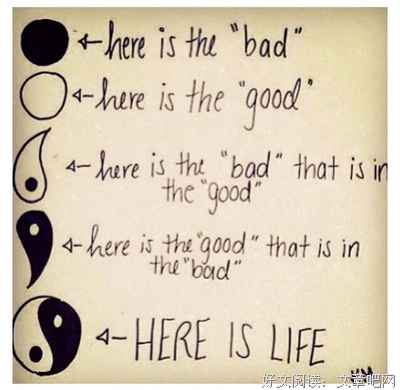 here is the "bad"
here is the "good"
here is the "bad" that is in
the "good"
here is the "good" that is in
the "bad"
HERE IS LIFE
好文阅读：文章吧网